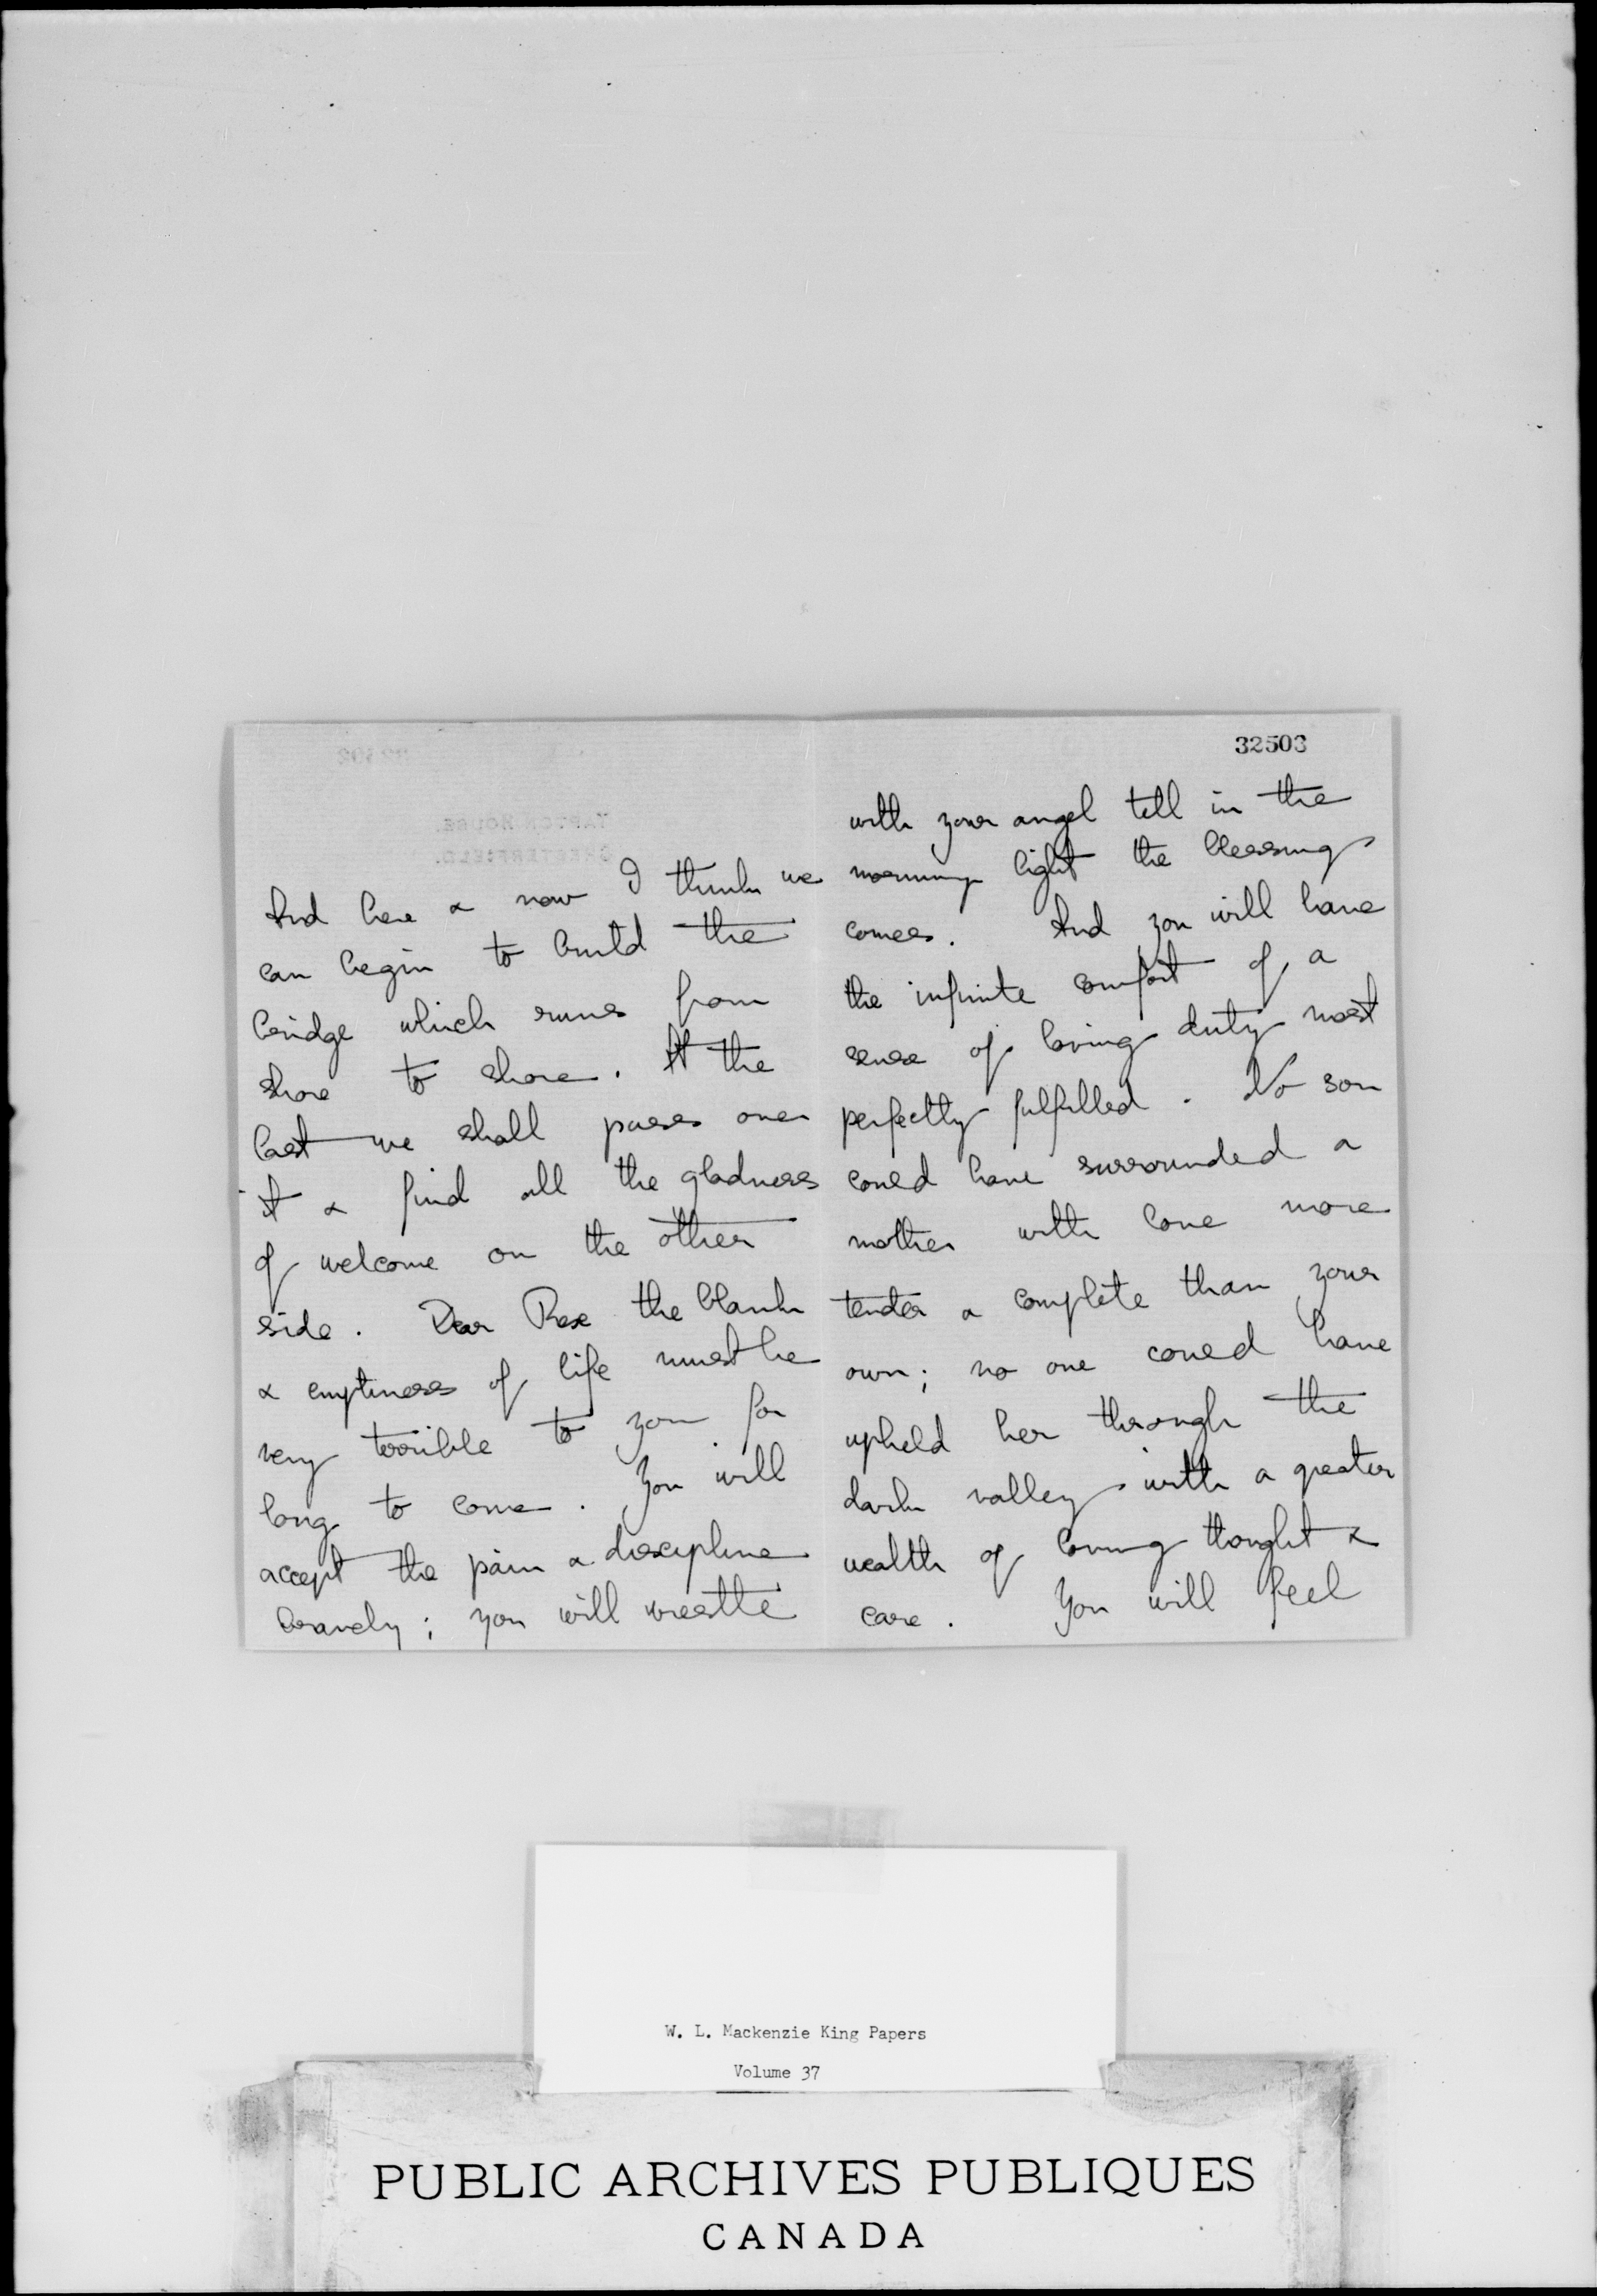 And here & now I think we
can begin to build the
bridge which runs from
shore to shore. At the
last we shall pass over
it & find all the gladness
of welcome on the other
side. Dear Rex the blank
& emptiness of life must be
very terrible to you for
long to come. You will
accept the pain & discipline
bravely; you will wrestle
32503
with your angel till in the
morning light the blessing
comes. And you will have
the infinite comfort of a
sense of loving duty most
perfectly fulfilled. No son
could have surrounded a
mother with love more
tender & complete than your
own; no one could have
upheld her through the
dark valley with a greater
wealth of loving thought &
care. You will feel
TAPTON HOUSE.
CHESTERFIELD.
W. L. Mackenzie King Papers
Volume 37
PUBLIC ARCHIVES PUBLIQUES
CANADA